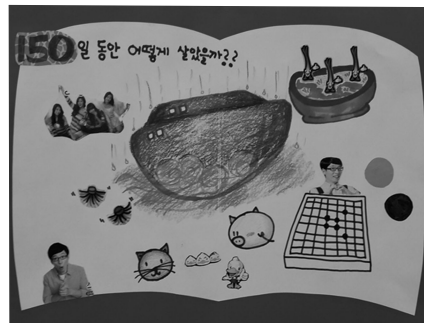 150일 동안 어떻게 살았을까??